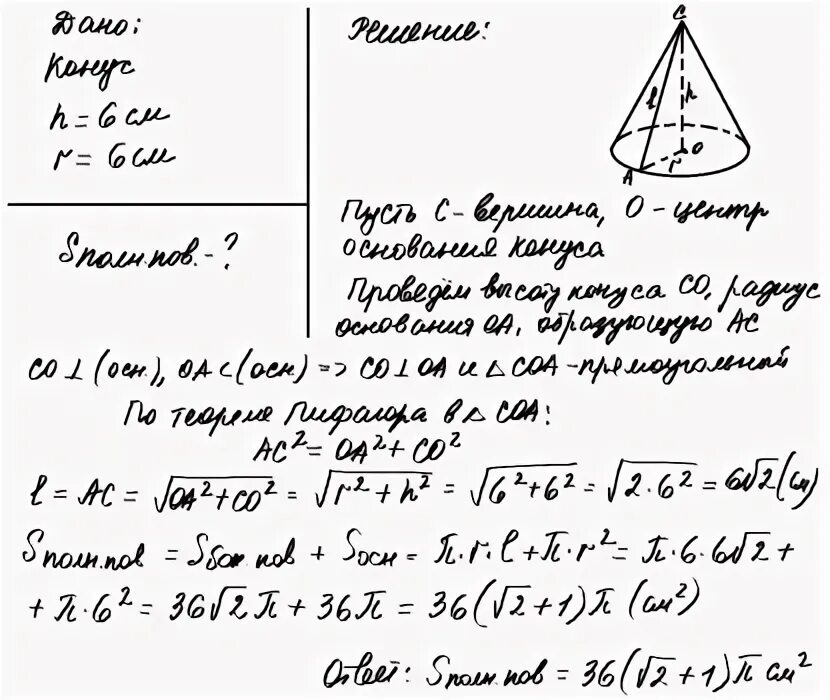 Дано:
Конус
h = 6 см
r = 6 см
Sполн.пов. - ?
Решение:
C
l
h
O
r
A
Пусть C - вершина, O - центр
основания конуса
Проведём высоту конуса CO, радиус
основания OA, образующую AC
CO ⊥ (осн.), OA ⊂ (осн) => CO ⊥ OA и △COA - прямоугольный
По теореме Пифагора в △COA:
AC² = OA² + CO²
l = AC = √(OA² + CO²) = √(r² + h²) = √(6² + 6²) = √(2·6²) = 6√2 (см)
Sполн.пов = Sбок.пов + Sосн = π·r·l + π·r² = π·6·6√2 +
+ π·6² = 36√2π + 36π = 36(√2 + 1)π (см²)
Ответ: Sполн.пов = 36(√2 + 1)π см²